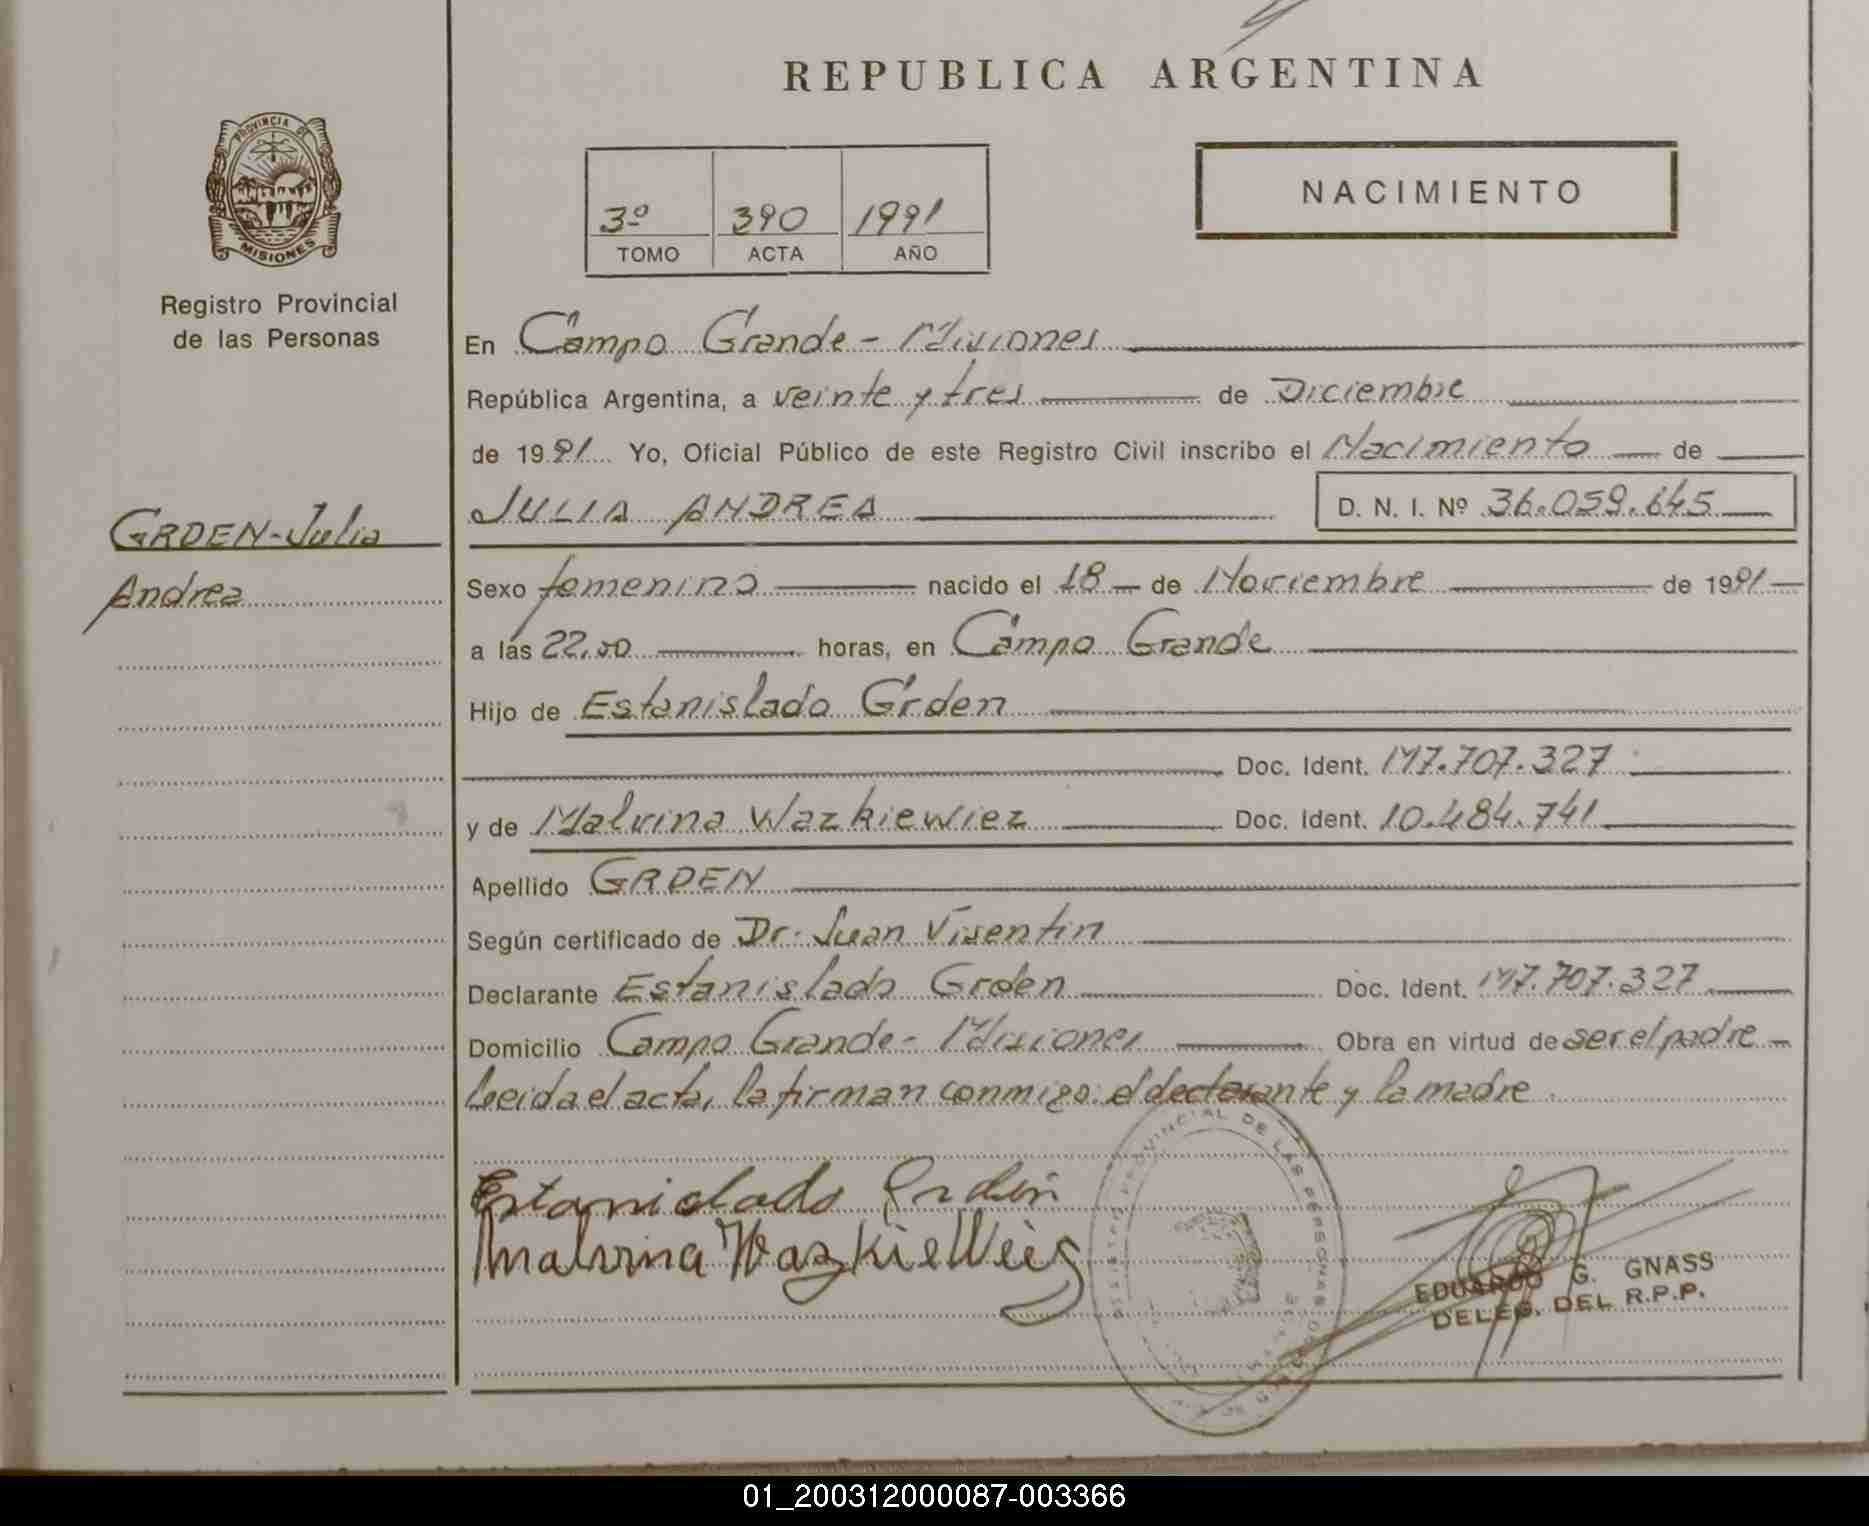 REPUBLICA ARGENTINA
PROVINCIA DE
MISIONES
Registro Provincial
de las Personas
3º 390 1991
TOMO ACTA AÑO
NACIMIENTO
En Campo Grande - Misiones
República Argentina, a veinte y tres de Diciembre
de 1991 Yo, Oficial Público de este Registro Civil inscribo el Nacimiento de
JULIA ANDREA D. N. I. Nº 36.059.645
GRDEN-Julia
Andrea
Sexo femenino nacido el 18 de Noviembre de 1991
a las 22,50 horas, en Campo Grande
Hijo de Estanislado Grden
Doc. Ident. M7.707.327
y de Malvina Wazkiewiez Doc. Ident. 10.484.741
Apellido GRDEN
Según certificado de Dr. Juan Visentin
Declarante Estanislado Grden Doc. Ident. M7.707.327
Domicilio Campo Grande - Misiones Obra en virtud de ser el padre
Leida el acta, la firman conmigo: el declarante y la madre
PROVINCIAL DE LAS PERSONAS
Estanislado Grden
Malvina WazkieWiez
EDUARDO G. GNASS
DELEG. DEL R.P.P.
01_200312000087-003366